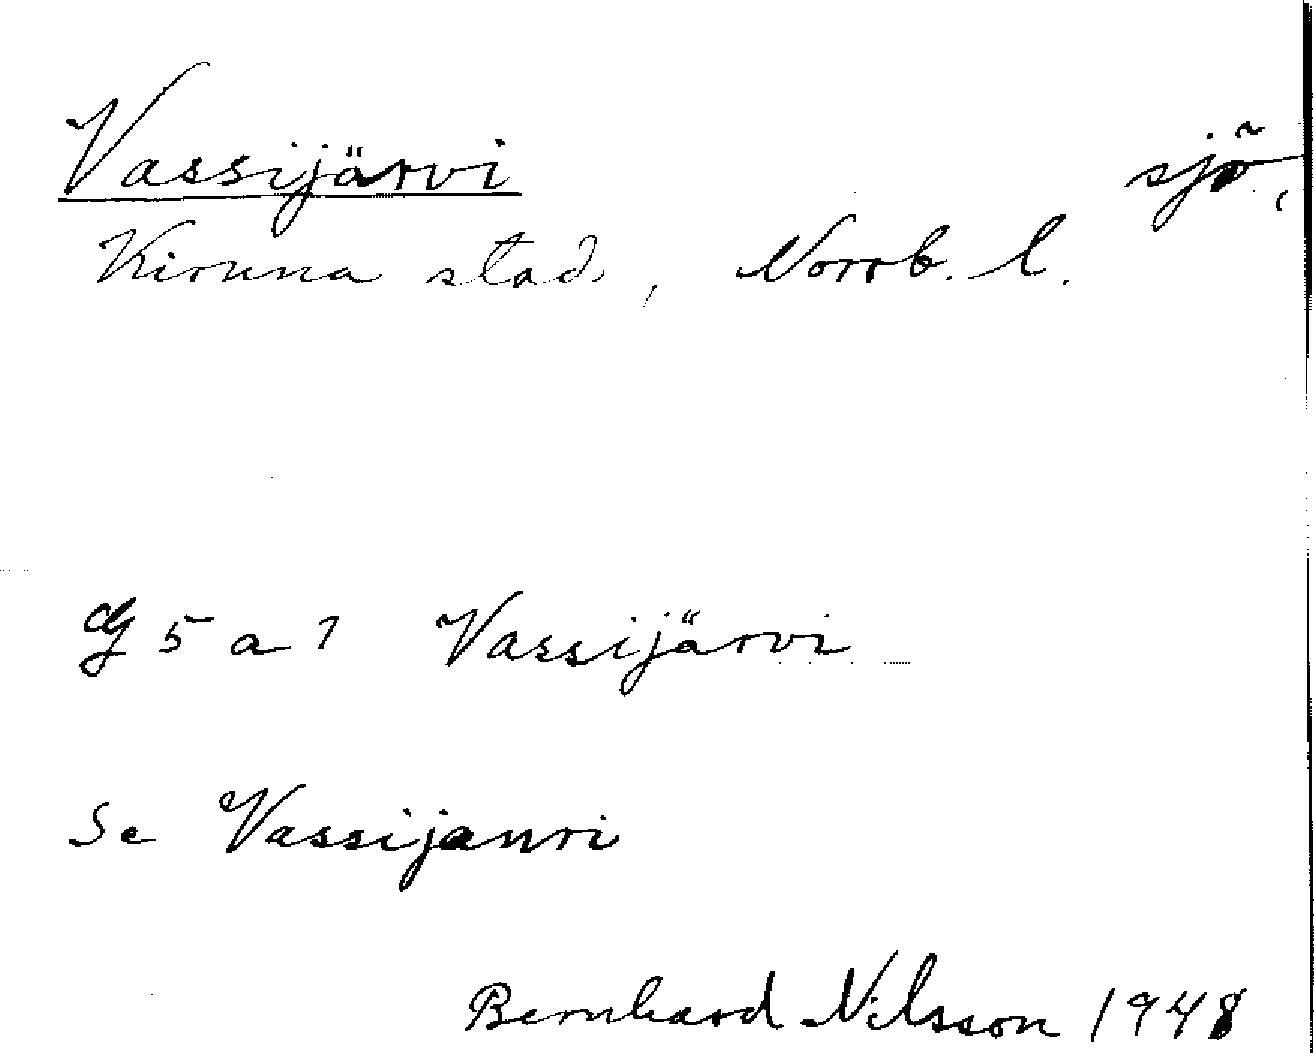 Vassijärvi sjö,
Kiruna stad, Norrb. l.
5 a 1 Vassijärvi
Se Vassijauri
Bernhard Nilsson 1948